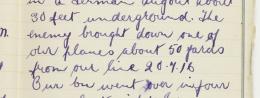 in a German dugout about
30 feet underground. The
m. enemy brought down one of
our planes about 50 yards
from our line 20.7.16
Our bn went over in four